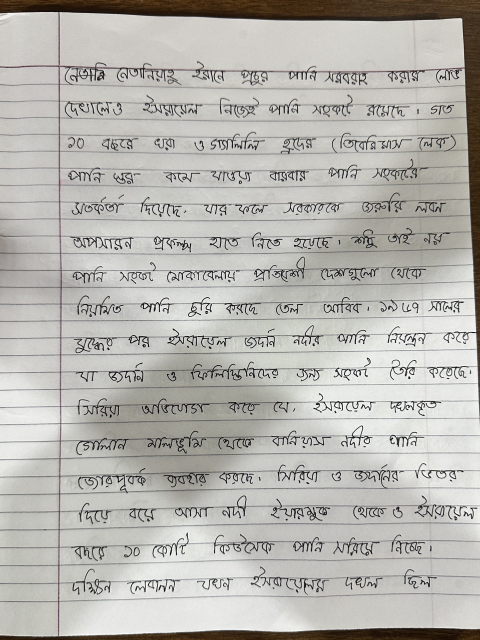 নেতানি নেতানিয়াহু ইরানে প্রচুর পানি সরবরাহ করার লোভ
দেখালেও ইসরায়েল নিজেই পানি সংকটে রয়েছে। গত
১০ বছরে খরা ও গ্যালিলি হ্রদের (তিবেরিয়াস লেক)
পানি স্তর কমে যাওয়া বারবার পানি সংকটের
সতর্কতা দিয়েছে, যার ফলে সরকারকে জরুরি লবন
অপসারন প্রকল্প হাতে নিতে হয়েছে। শুধু তাই নয়
পানি সংকট মোকাবেলায় প্রতিবেশী দেশগুলো থেকে
নিয়মিত পানি চুরি করছে তেল আবিব। ১৯৬৭ সালের
যুদ্ধের পর ইসরায়েল জর্দান নদীর পানি নিয়ন্ত্রন করে
যা জর্দান ও ফিলিস্তিনিদের জন্য সংকট তৈরি করেছে।
সিরিয়া অভিযোগ করে যে, ইসরায়েল দখলকৃত
গোলান মালভূমি থেকে বানিয়াস নদীর পানি
জোরপূর্বক ব্যবহার করছে। সিরিয়া ও জর্দানের ভিতর
দিয়ে বয়ে আসা নদী ইয়ারমুক থেকে ও ইসরায়েল
বছরে ১০ কোটি কিউবেক পানি সরিয়ে নিচ্ছে।
দক্ষিন লেবানন যখন ইসরায়েলের দখল ছিল